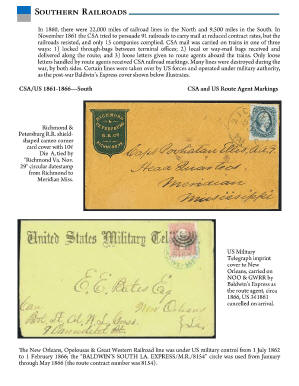 SOUTHERN RAILROADS
In 1860, there were 22,000 miles of railroad lines in the North and 9,500 miles in the South. In
November 1860, the CSA tried to persuade 91 railroads to carry mail at reduced contract rates, but the
railroads resisted, and only 15 companies complied. CSA mail was carried on trains in one of three
ways: 1) locked through-bags between terminal offices; 2) local or way-mail bags received and
delivered along the route; and 3) loose letters given to route agents aboard the trains. Only loose
letters handled by route agents received CSA railroad markings. Many lines were destroyed during the
war, by both sides. Certain lines were taken over by US forces and operated under military authority,
as the post-war Baldwin's Express cover shown below illustrates.
CSA/US 1861-1866—South
CSA and US Route Agent Markings
Richmond &
Petersburg R.R. shield-
shaped cameo corner
card cover with 10¢
Die A, tied by
"Richmond Va. Nov.
29" circular datestamp
from Richmond to
Meridian Miss.
RICHMOND
&
PETERSBURG
R.R. CO.
RICHMOND
Capt
Head Quarters
Meridian
Mississippi
United States Military Tel
E.E. Bates Esq
New Orleans
La
US Military
Telegraph imprint
cover to New
Orleans, carried on
NOO & GWRR by
Baldwin's Express
as the route agent, circa
1866, US 3¢ 1861
cancelled on arrival.
The New Orleans, Opelousas & Great Western Railroad line was under US military control from 1 July 1862
to 1 February 1866; the "BALDWIN'S SOUTH LA. EXPRESS/M.R./8154" circle was used from January
through May 1866 (the route contract number was 8154).